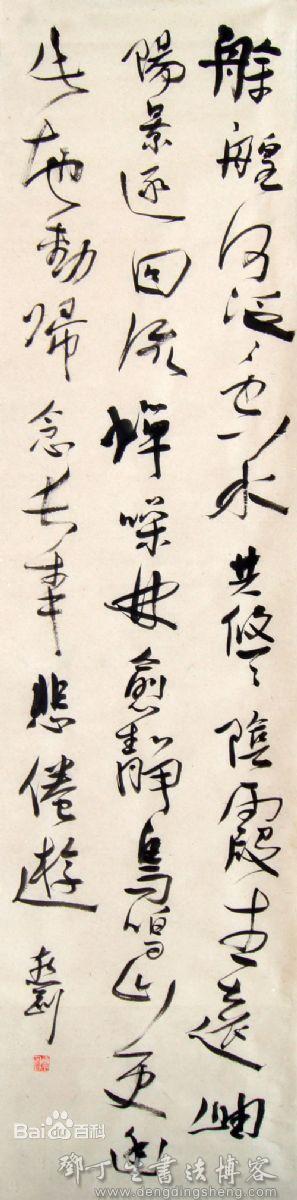 艅艎何泛々空水共悠々陰霞生遠岫
陽景逐回流蟬噪林愈靜鳥鳴山更幽
此地動歸念長年悲倦遊
Bai百科
鄧丁生書法博客
www.dengdingsheng.com